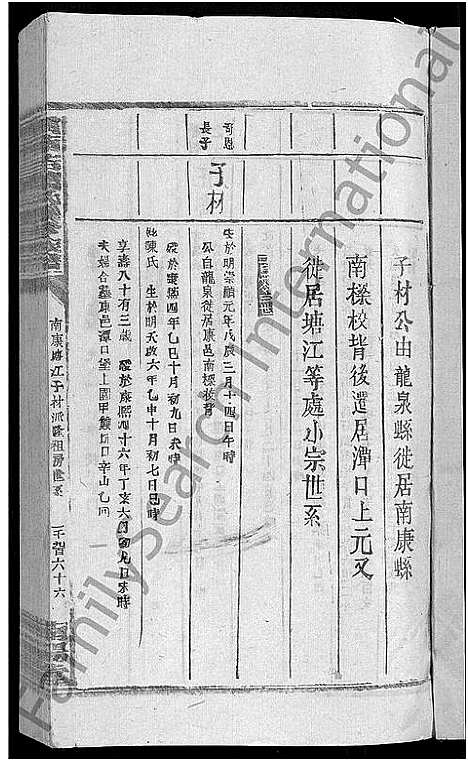 子材公由龍泉縣徙居南康縣
南樑校背後遷居潭口上元又
徙居塘江等處小宗世系
哥恩
長子
子材
生於明崇禎元年戊辰三月十四日午時
公自龍泉徙居康邑南樑校背
歿於康熙四年乙巳十月初九日未時
妣陳氏 生於明天啟六年 十月初七日 時
享壽八十有三歲 歿於康熙四十六年丁亥六月初九日未時
夫婦合墓康邑潭口堡上園甲 口辛山乙向
南康塘江子材派 祖房世系
六十六
FamilySearch International